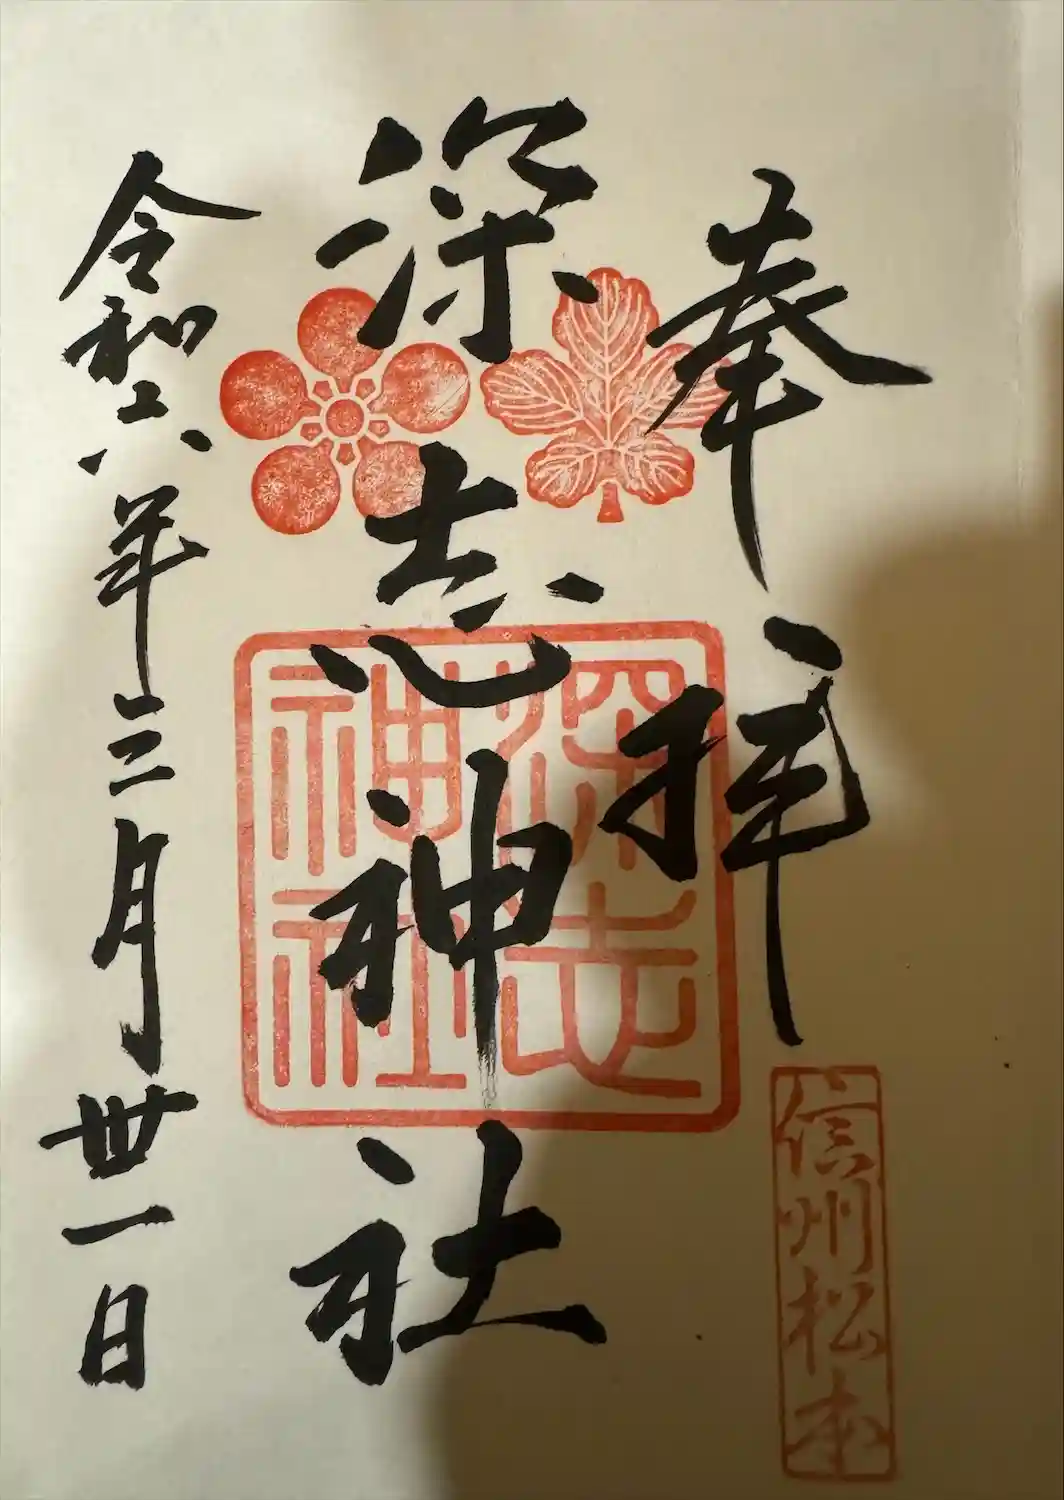 奉拝
信州松本
深志神社
深志
神社
令和六年三月丗一日